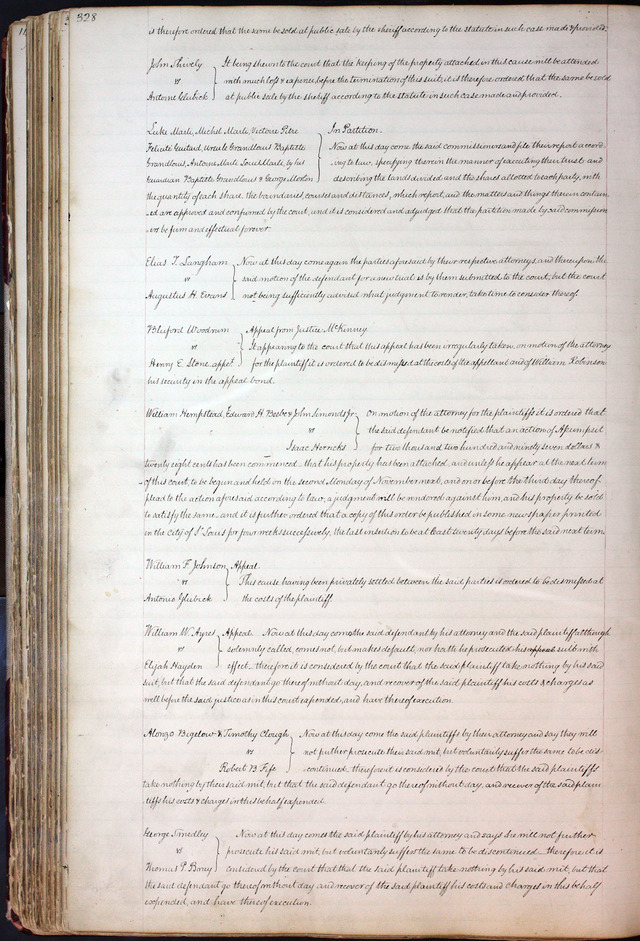 328
is therefore ordered that the same be sold at public sale by the sheriff according to the statute in such case made & provided.
John Shively
vs
Antoine Glubick
It being shewn to the court that the keeping of the property attached in this cause will be attended
with much loss & expense, before the termination of this suit, it is therefore ordered that the same be sold
at public sale by the sheriff according to the statute in such case made and provided.
Luke Marli, Michel Marli, Victorie Petre
Felicité Guitard, Ursule Grandlouis Baptiste
Grandlouis, Antoine Marli Louis Marli, by his
Guardian Baptiste Grandlouis & George Morton
In Partition.
Now at this day come the said commissioners and file their report accord-
ing to law, specifying therein the manner of executing their trust and
describing the lands divided and the shares allotted to each party, with
the quantity of each share, the boundaries, courses and distances, which report, and the matters and things therein contain-
ed are approved and confirmed by the court, and it is considered and adjudged that the partition made by said commission-
ers be firm and effectual forever
Elias T. Langham
vs
Augustus H. Evans
Now at this day come again the parties aforesaid by their respective attorneys, and thereupon the
said motion of the defendant for a new trial is by them submitted to the court, but the court
not being sufficiently advised what judgment to render, take time to consider thereof.
Bluford Woodrum
vs
Henry E. Stone appt.
Appeal from Justice McKinney
It appearing to the court that this appeal has been irregularly taken, on motion of the attorney
for the plaintiff it is ordered to be dismissed at the costs of the appellant and of William Robinson
his security in the appeal bond.
William Hempstead, Edward H. Beebe & John Simonds Jr
vs
Isaac Herricks
On motion of the attorney for the plaintiffs it is ordered that
the said defendant be notified that an action of Assumpsit
for two thousand two hundred and ninety seven dollars &
twenty eight cents has been commenced - that his property has been attached, and unless he appear at the next term
of this court, to be begun and held on the second Monday of November next, and on or before the third day thereof
plead to the action aforesaid according to law, a judgment will be rendered against him, and his property be sold
to satisfy the same - and it is further ordered that a copy of this order be published in some newspaper printed
in the city of St. Louis for four weeks successively, the last insertion to be at least twenty days before the said next term.
William F. Johnson
vs
Antonio Glubick
Appeal.
This cause having been privately settled between the said parties is ordered to be dismissed at
the costs of the plaintiff.
William W. Ayres
vs
Elijah Hayden
Appeal. Now at this day comes the said defendant by his attorney and the said plaintiff although
solemnly called, comes not, but makes default, nor hath he prosecuted his appeal suit with
effect - therefore it is considered by the court that the said plaintiff take nothing by his said
suit, but that the said defendant go thereof without day, and recover of the said plaintiff his costs & charges as
well before the said justice as in this court expended, and have thereof execution.
Alonzo Bigelow & Timothy Clough
vs
Robert B. Fife
Now at this day come the said plaintiffs by their attorney and say they will
not further prosecute their said suit, but voluntarily suffer the same to be dis-
continued - therefore it is considered by the court that the said plaintiffs
take nothing by their said suit, but that the said defendant go thereof without day, and recover of the said plain-
tiffs his costs & charges in this behalf expended.
George Smedley
vs
Thomas P. Bray
Now at this day comes the said plaintiff by his attorney and says he will not further
prosecute his said suit, but voluntarily suffers the same to be discontinued - therefore it is
considered by the court that that the said plaintiff take nothing by his said suit, but that
the said defendant go thereof without day and recover of the said plaintiff his costs and charges in this behalf
expended, and have thereof execution.